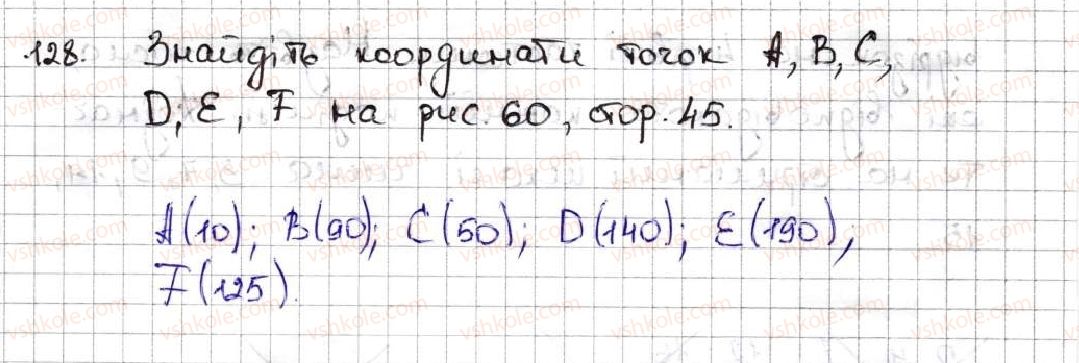 128. Знайдіть координати точок A, B, C,
D, E, F на рис. 60, стор. 45.
A(10); B(90); C(50); D(140); E(190),
F(125).